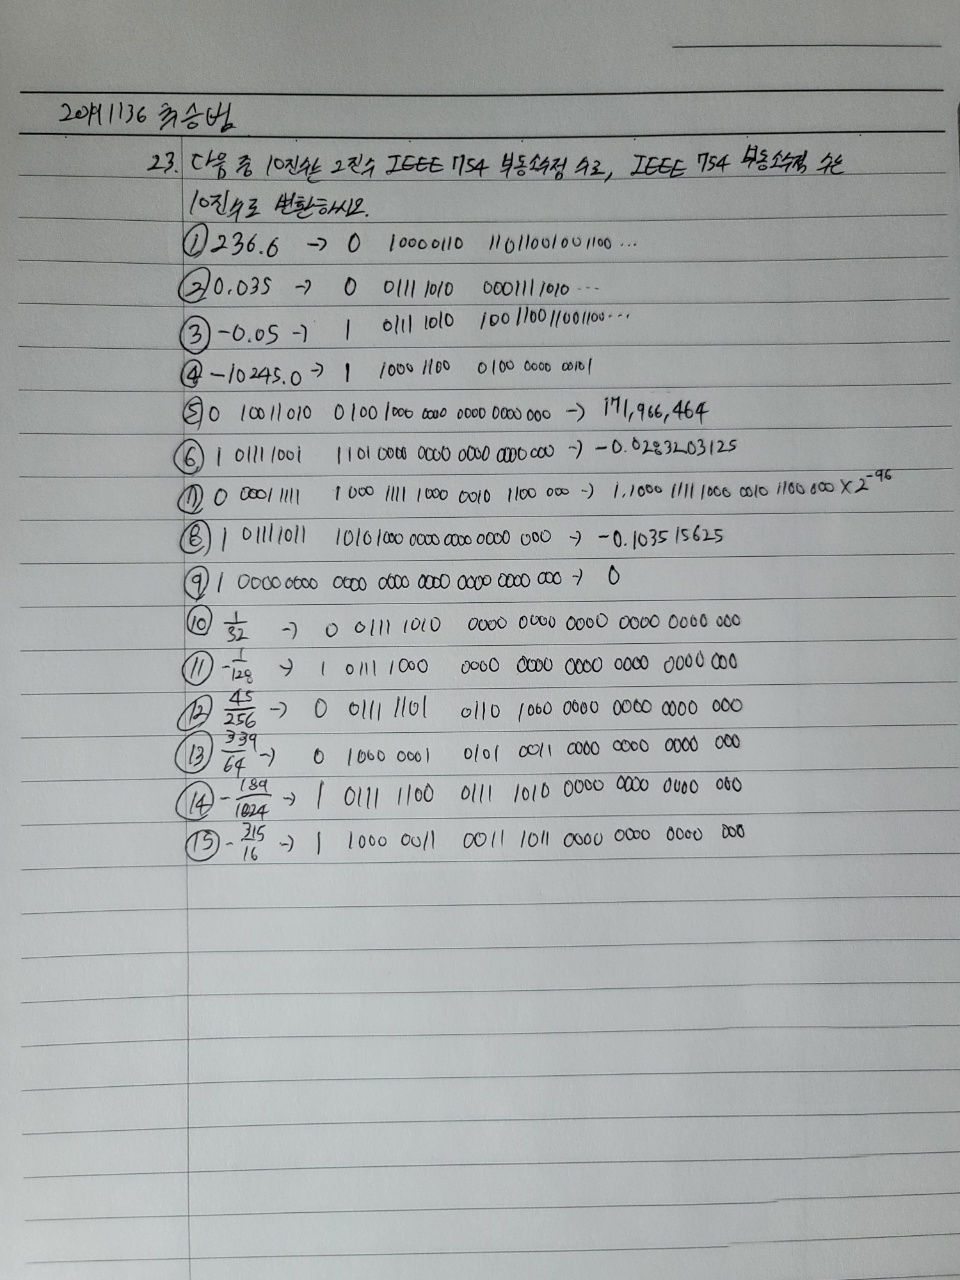 최승범
23. 다음 중 10진수는 2진수 IEEE 754 부동소수점 수로, IEEE 754 부동소수점 수는
10진수로 변환하시오.
① 236.6 → 0 10000110 1101100100 1100 ...
② 0.035 → 0 0111 1010 0001111010 ...
③ -0.05 → 1 0111 1010 100110011001100...
④ -10245.0 → 1 1000 1100 0100 0000 00101
⑤ 0 10011010 0100 1000 0000 0000 0000 000 → 171,966,464
⑥ 1 01111001 1101 0000 0000 0000 0000 000 → -0.0283203125
⑦ 0 0001 1111 1000 1111 1000 0010 1100 000 → 1.1000 1111 1000 0010 1100 000 × 2^-96
⑧ 1 01111011 10101000 0000 0000 0000 000 → -0.103515625
⑨ 1 0000 0000 0000 0000 0000 0000 0000 000 → 0
⑩ 1/32 → 0 0111 1010 0000 0000 0000 0000 0000 000
⑪ -1/128 → 1 0111 1000 0000 0000 0000 0000 0000 000
⑫ 45/256 → 0 0111 1101 0110 1000 0000 0000 0000 000
⑬ 339/64 → 0 1000 0001 0101 0011 0000 0000 0000 000
⑭ -189/1024 → 1 0111 1100 0111 1010 0000 0000 0000 000
⑮ -315/16 → 1 1000 0011 0011 1011 0000 0000 0000 000